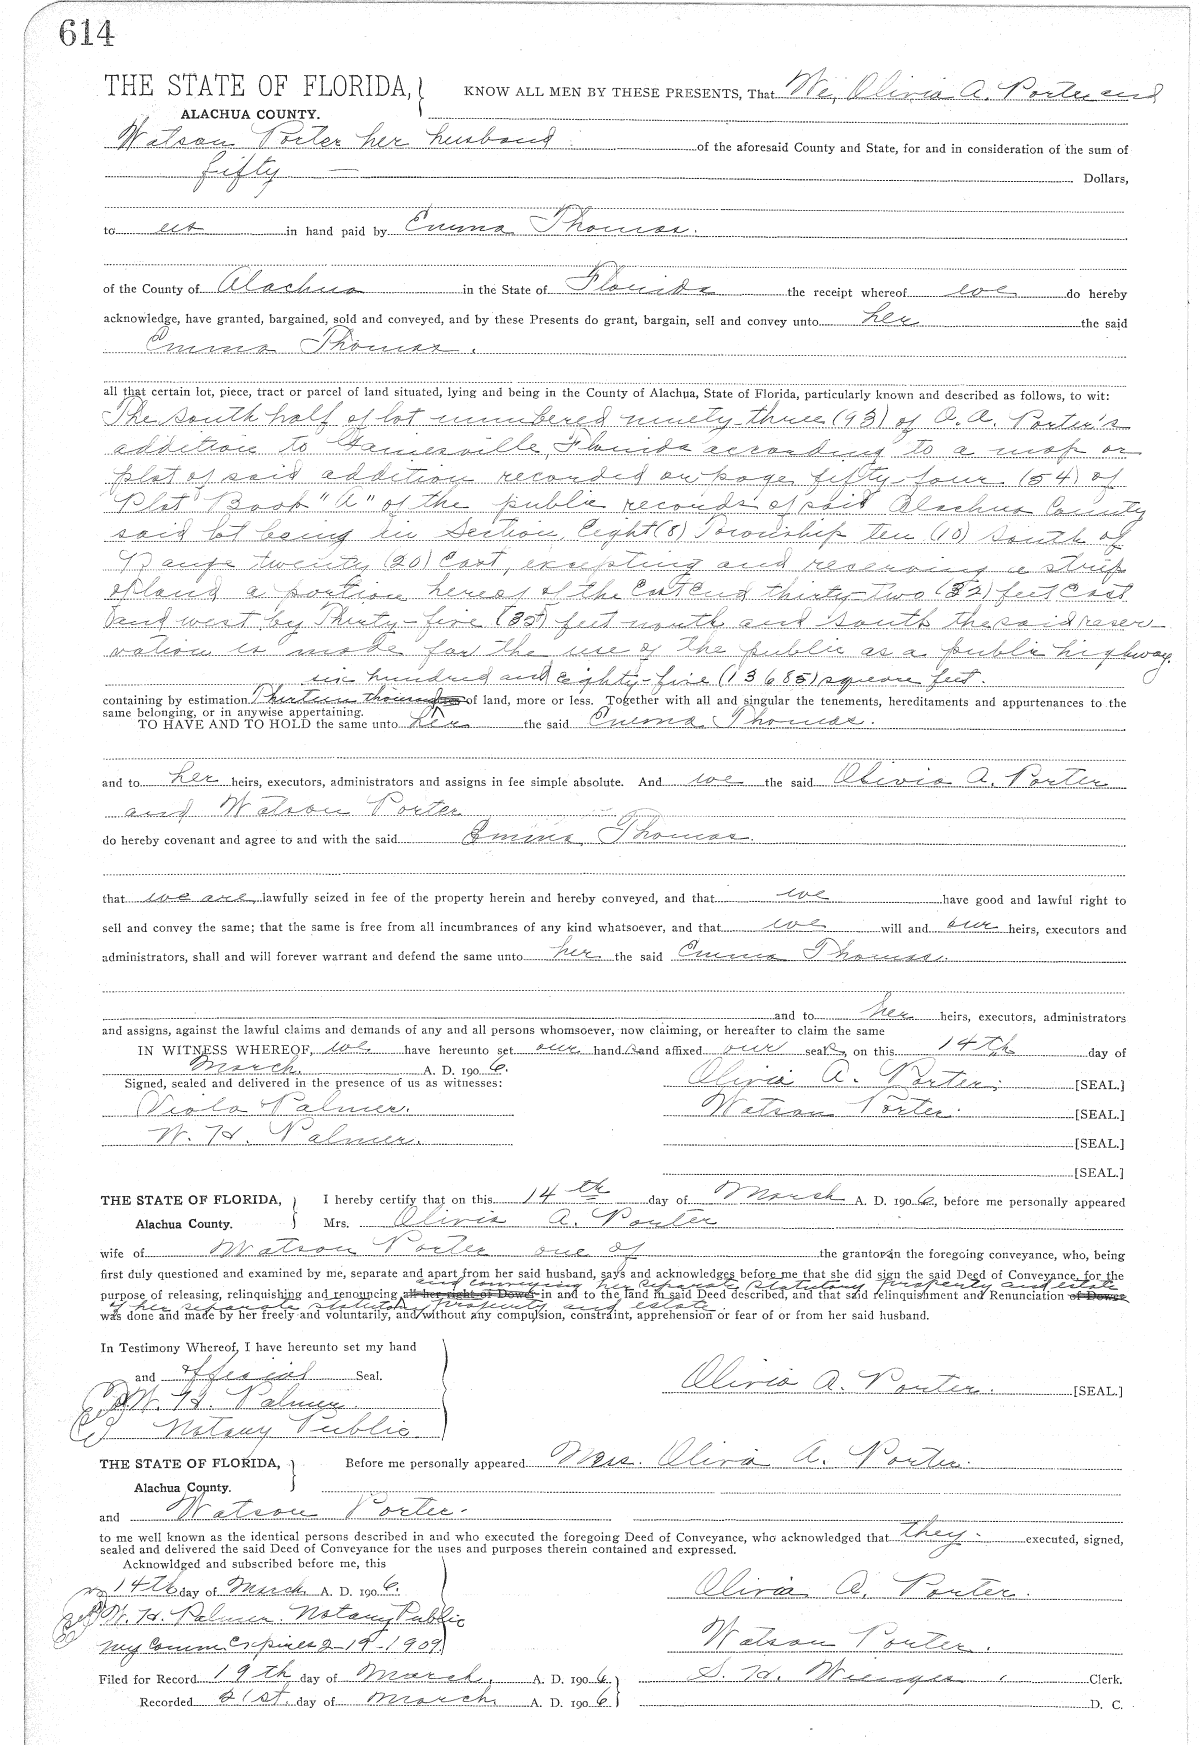 614
THE STATE OF FLORIDA, KNOW ALL MEN BY THESE PRESENTS, That We, Olivia A. Porter and
ALACHUA COUNTY.
Watson Porter her husband of the aforesaid County and State, for and in consideration of the sum of
fifty — Dollars,
to us in hand paid by Emma Thomas.
of the County of Alachua in the State of Florida the receipt whereof we do hereby
acknowledge, have granted, bargained, sold and conveyed, and by these Presents do grant, bargain, sell and convey unto her the said
Emma Thomas.
all that certain lot, piece, tract or parcel of land situated, lying and being in the County of Alachua, State of Florida, particularly known and described as follows, to wit:
The south half of lot numbered ninety-three (93) of O. A. Porter's
addition to Gainesville, Florida according to a map or
plat of said addition recorded on page fifty-four (54) of
Plat Book "A" of the public records of said Alachua County
said lot being in Section Eight (8) Township ten (10) South of
Range twenty (20) East, excepting and reserving a strip
of land a portion hereof of the East End thirty-two (32) feet East
and west by Thirty-five (35) feet north and south the said reser-
vation is made for the use of the public as a public highway.
six hundred and eighty-five (13685) square feet.
containing by estimation Thirteen thousand of land, more or less. Together with all and singular the tenements, hereditaments and appurtenances to the
same belonging, or in anywise appertaining.
TO HAVE AND TO HOLD the same unto her the said Emma Thomas.
and to her heirs, executors, administrators and assigns in fee simple absolute. And we the said Olivia A. Porter
and Watson Porter
do hereby covenant and agree to and with the said Emma Thomas.
that we are lawfully seized in fee of the property herein and hereby conveyed, and that we have good and lawful right to
sell and convey the same; that the same is free from all incumbrances of any kind whatsoever, and that we will and our heirs, executors and
administrators, shall and will forever warrant and defend the same unto her the said Emma Thomas.
and to her heirs, executors, administrators
and assigns, against the lawful claims and demands of any and all persons whomsoever, now claiming, or hereafter to claim the same
IN WITNESS WHEREOF, we have hereunto set our hands and affixed our seals, on this 14th day of
March A. D. 1906.
Signed, sealed and delivered in the presence of us as witnesses: Olivia A. Porter. [SEAL.]
Viola Palmer. Watson Porter. [SEAL.]
W. H. Palmer. [SEAL.]
[SEAL.]
THE STATE OF FLORIDA, I hereby certify that on this 14th day of March A. D. 1906, before me personally appeared
Alachua County. Mrs. Olivia A. Porter
wife of Watson Porter one of the grantors in the foregoing conveyance, who, being
first duly questioned and examined by me, separate and apart from her said husband, says and acknowledges before me that she did sign the said Deed of Conveyance, for the
and conveying her separate statutory property and estate
purpose of releasing, relinquishing and renouncing all her right of Dower in and to the land in said Deed described, and that said relinquishment and Renunciation of Dower
of her separate statutory property and estate
was done and made by her freely and voluntarily, and without any compulsion, constraint, apprehension or fear of or from her said husband.
In Testimony Whereof, I have hereunto set my hand
and official Seal. Olivia A. Porter. [SEAL.]
W. H. Palmer.
Notary Public.
THE STATE OF FLORIDA, Before me personally appeared Mrs. Olivia A. Porter.
Alachua County.
and Watson Porter.
to me well known as the identical persons described in and who executed the foregoing Deed of Conveyance, who acknowledged that they executed, signed,
sealed and delivered the said Deed of Conveyance for the uses and purposes therein contained and expressed.
Acknowldged and subscribed before me, this
14th day of March A. D. 1906. Olivia A. Porter.
W. H. Palmer. Notary Public
My Comm. Expires 2-19-1909. Watson Porter.
Filed for Record 19th day of March, A. D. 1906 S. H. Wienges, Clerk.
Recorded 21st. day of March A. D. 1906 D. C.